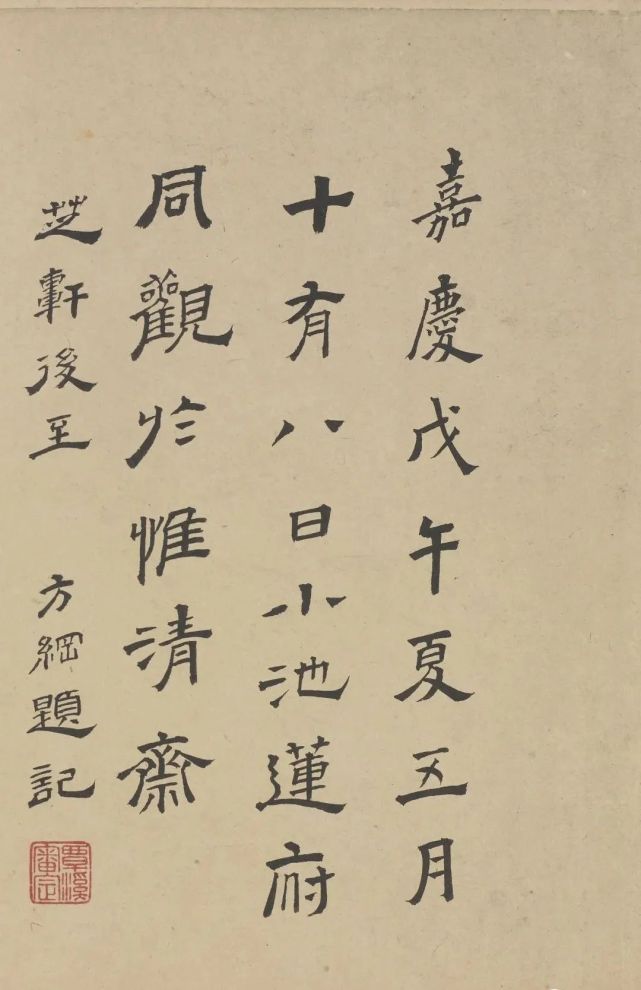 嘉慶戊午夏五月
十有八日小池蓮府
同觀於惟清齋
芝軒後至 方綱題記
覃溪
審定